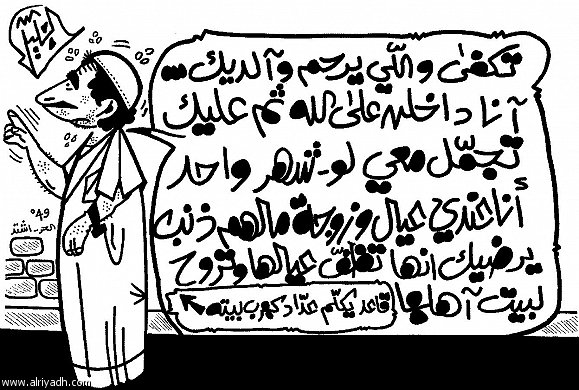 تكفىٰ واللّي يرحم وآلديك ...
آنا داخلٍ علىٰ الله ثم عليك
تجمّل معي لو شهر واحد
أنا عندي عيال وزوجة مالهم ذنب
يرضيك انها عيالها وتروح
لبيت آهلها
قاعد يكلّم عدّاد كهرب بيته
49°
الحر اشتد
www.alriyadh.com